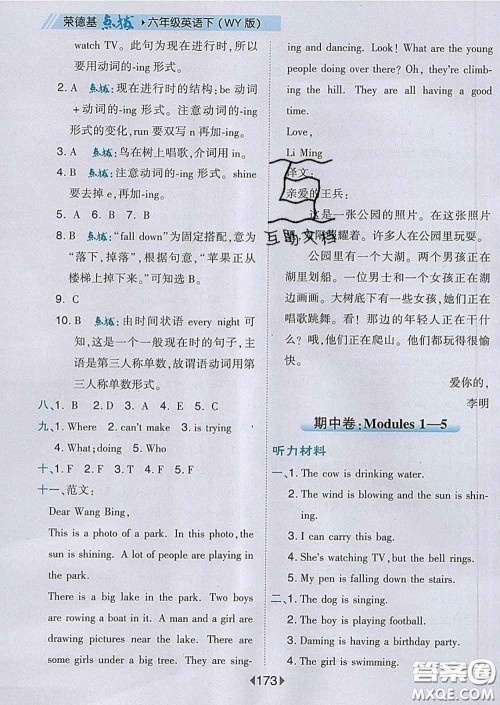 荣德基 点拨 ▸六年级英语下（WY 版）
watch TV。此句为现在进行时,所以
要用动词的-ing 形式。
2. A 点拨:现在进行时的结构:be 动词
+动词的-ing 形式。注意动词的-ing
形式的变化,run 要双写 n 再加-ing。
3. A 点拨:鸟在树上唱歌,介词用 in。
4. B 点拨:注意动词的-ing 形式。shine
要去掉 e,再加-ing。
5. A 6. B 7. B 8. A
9. B 点拨:“fall down”为固定搭配,意
为“落下,掉落”,根据句意“苹果正从
楼梯上掉下来”可知选 B。
10. B 点拨:由时间状语 every night 可
知,这是一个一般现在时的句子,主
语是第三人称单数,故谓语动词用第
三人称单数形式。
八、1. B 2. D 3. A 4. C 5. E
九、1. Where 2. can't make 3. is trying
4. What; doing 5. But
十、1. F 2. F 3. T 4. F 5. F
十一、范文:
Dear Wang Bing,
This is a photo of a park. In the photo, the
sun is shining. A lot of people are playing in
the park.
There is a big lake in the park. Two boys
are rowing a boat in it. A man and a girl are
drawing pictures near the lake. There are
some girls under a big tree. They are sing-
ing and dancing. Look! What are those
people doing over there? Oh, they're climb-
ing the hill. They are all having a good
time.
Love,
Li Ming
译文:
亲爱的王兵:
这是一张公园的照片。在这张照片
中,太阳照耀着。许多人在公园里玩耍。
公园里有一个大湖。两个男孩正在
湖里划船。一位男士和一个女孩正在湖
边画画。大树底下有一些女孩,她们正在
唱歌跳舞。看!那边的人们正在干什
么?哦,他们正在爬山。他们都玩得很
开心。
爱你的,
李明
互助文档
期中卷:Modules 1—5
听力材料
一、1. The cow is drinking water.
2. The wind is blowing and the sun is shin-
ing.
3. I can carry this bag.
4. She's watching TV, but the bell rings.
5. My pen is falling down the stairs.
二、1. The dog is singing.
2. The boy is playing football.
3. Daming is having a birthday party.
4. The girl is swimming.
173
答案圈
MXQE.COM